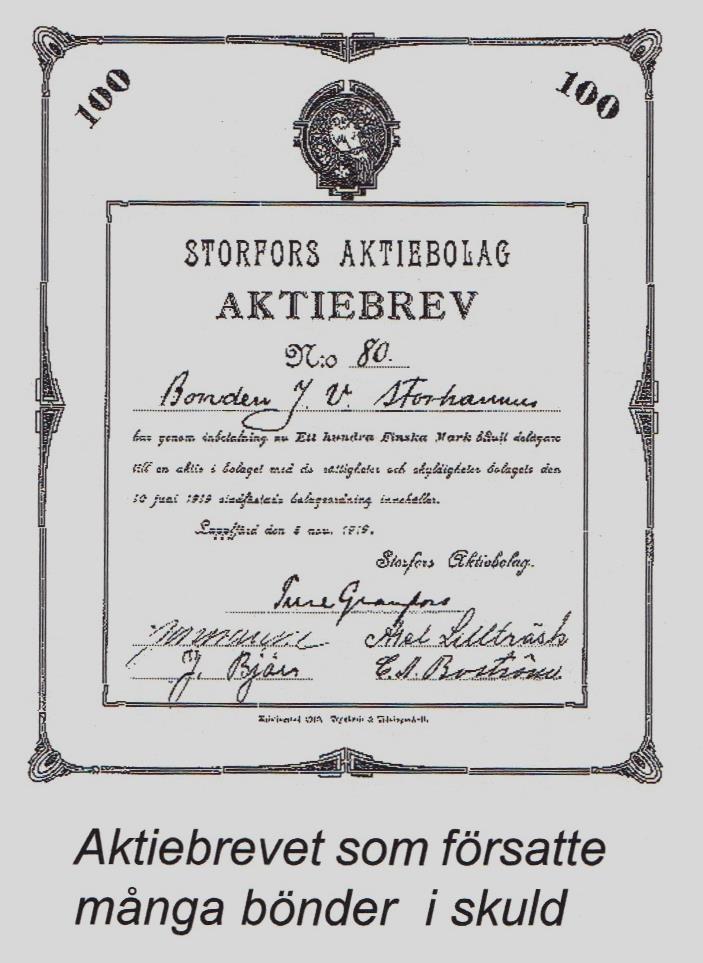 100 100
STORFORS AKTIEBOLAG
AKTIEBREV
N:o 80.
Bonden J. V. Storhannus
har genom inbetalning av Ett hundra Finska Mark blivit delägare
till en aktie i bolaget med de rättigheter och skyldigheter bolagets den
10 juni 1919 stadfästade bolagsordning innehåller.
Lappfjärd den 5 nov. 1919.
Storfors Aktiebolag.
Ture Granfors
Axel Lillträsk
J. Björs C. A. Boström
Kristinestad 1919.
Aktiebrevet som försatte
många bönder i skuld